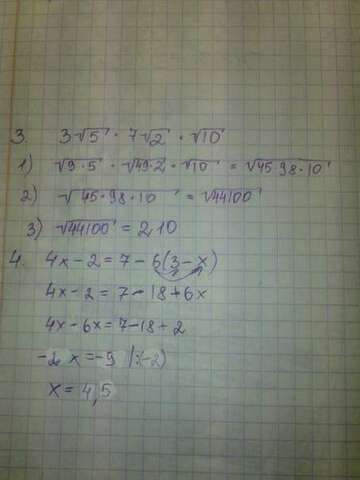 3. 3√5 · 7√2 · √10
1) √9·5 · √49·2 · √10 = √45·98·10
2) √45·98·10 = √44100
3) √44100 = 210
4. 4x - 2 = 7 - 6(3 - x)
4x - 2 = 7 - 18 + 6x
4x - 6x = 7 - 18 + 2
-2x = -9 |:(-2)
x = 4,5